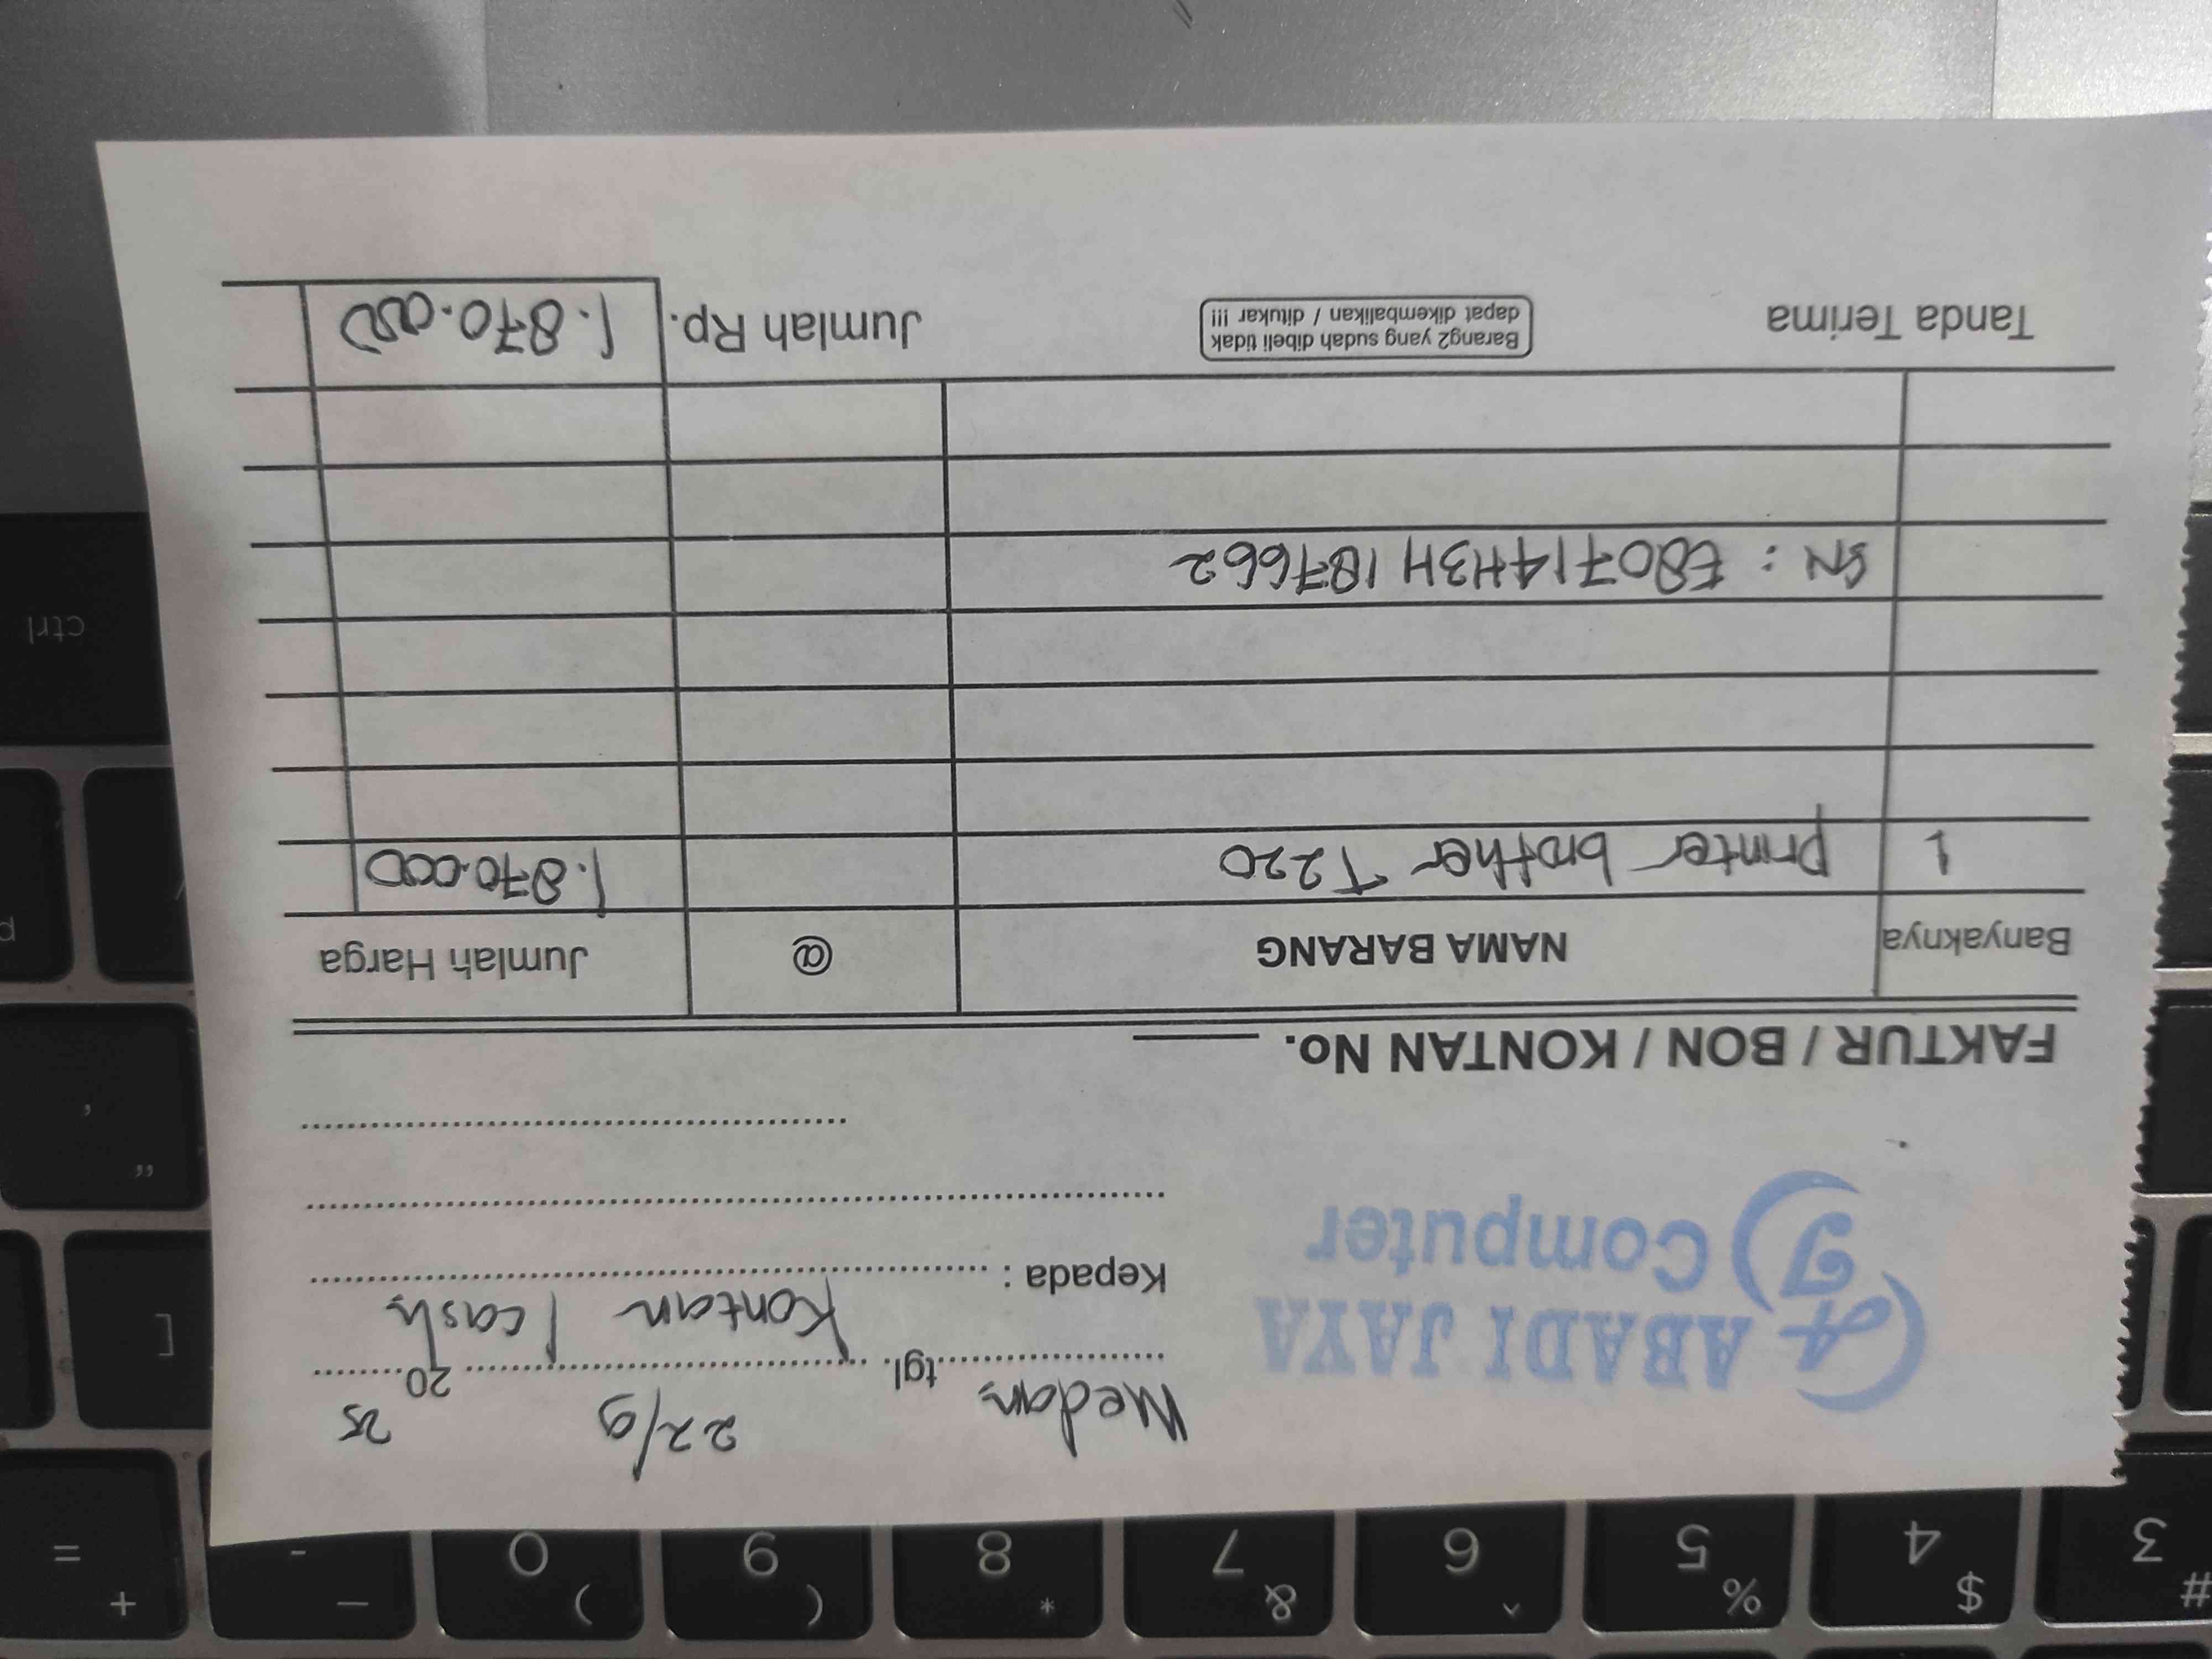 ABADI JAYA
AJ Computer
Medan tgl. 22/9 2025
Kontan / cash
Kepada :
FAKTUR / BON / KONTAN No.
Banyaknya NAMA BARANG @ Jumlah Harga
1 printer brother T220 1.870.000
SN : E80714H3H187662
Tanda Terima
Barang2 yang sudah dibeli tidak
dapat dikembalikan / ditukar !!!
Jumlah Rp. 1.870.000
# 3
$ 4
% 5
^ 6
& 7
* 8
( 9
) 0
_ -
+ =
[
"
'
P
ctrl